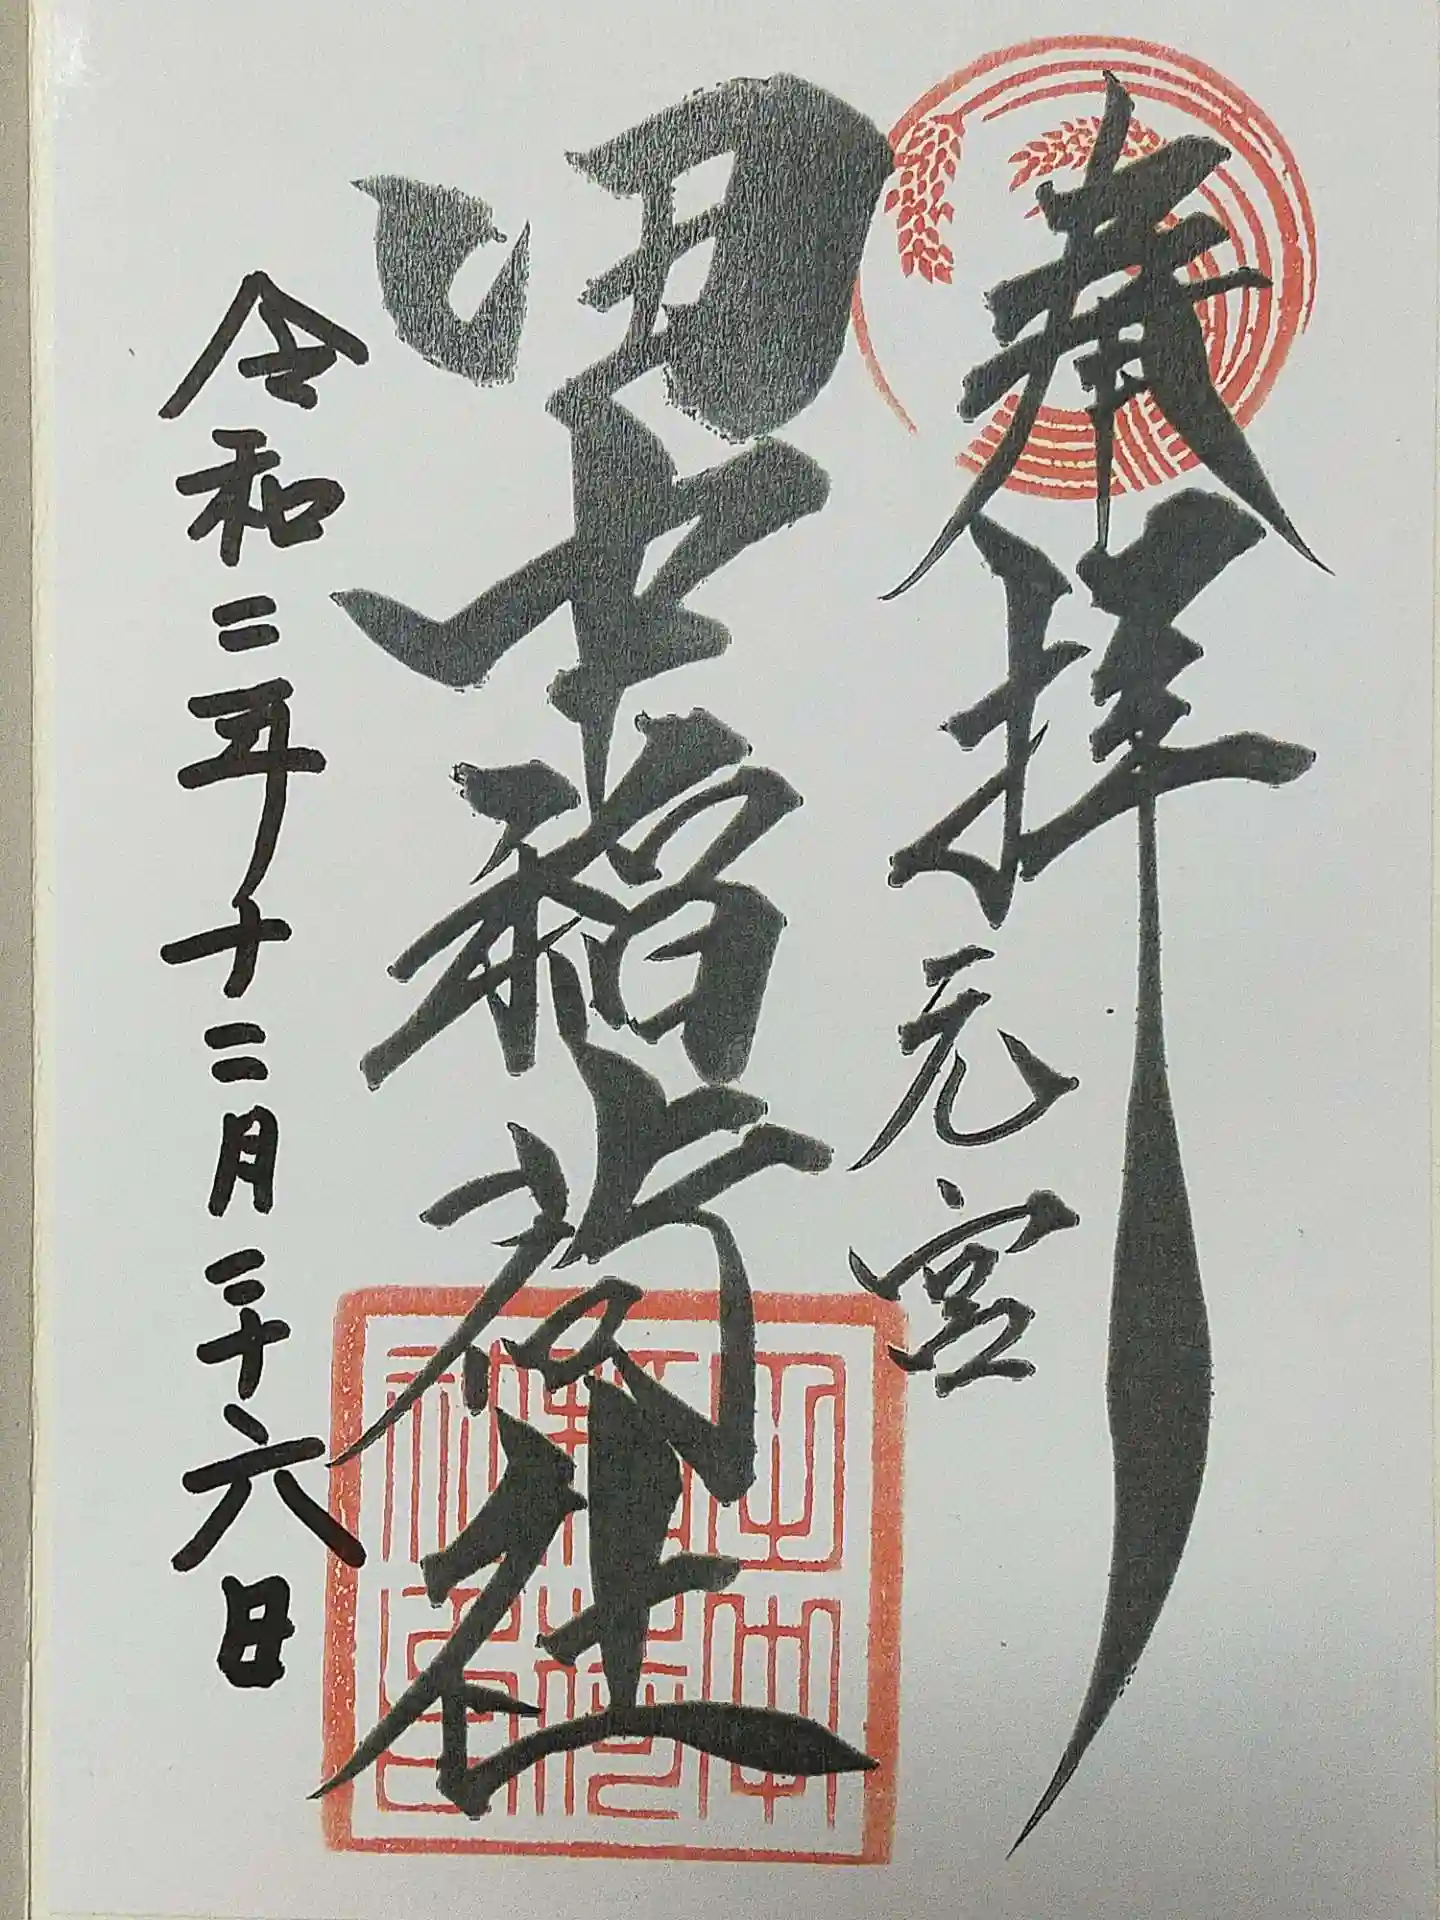 奉拝 元宮
稲荷社
令和二年十二月二十六日